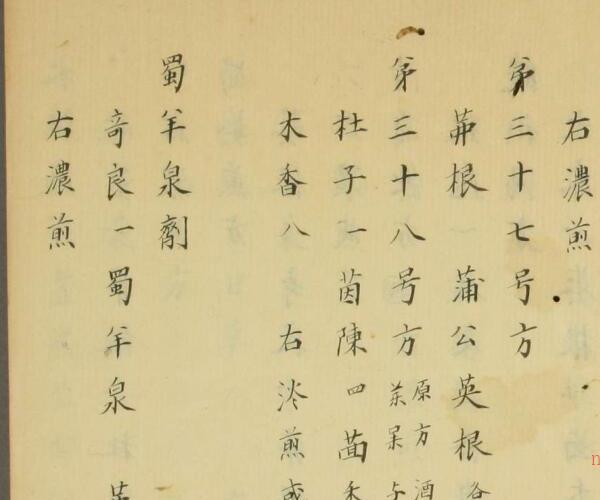 右濃煎
第三十七号方
茆根 蒲公英根
第三十八号方 原方酒
杜子一茵陳四茴香
木香八 右淡煎或
蜀羊泉劑
奇良一蜀羊泉
右濃煎